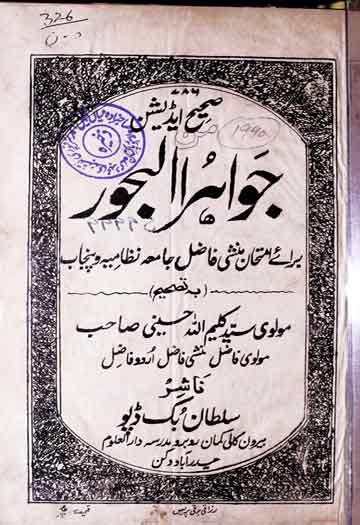 326
۷۸۶
صحیح ایڈیشن
1990
جواہر البحور
برائے امتحان منشی فاضل جامعہ نظامیہ و پنجاب
(بہ تصحیح)
مولوی سید کلیم اللہ حسینی صاحب
مولوی فاضل منشی فاضل اردو فاضل
ناشر
سلطان بک ڈپو
بیرون کالی کمان روبرو مدرسہ دارالعلوم
حیدرآباد دکن
رزاقی برقی پریس
قیمت